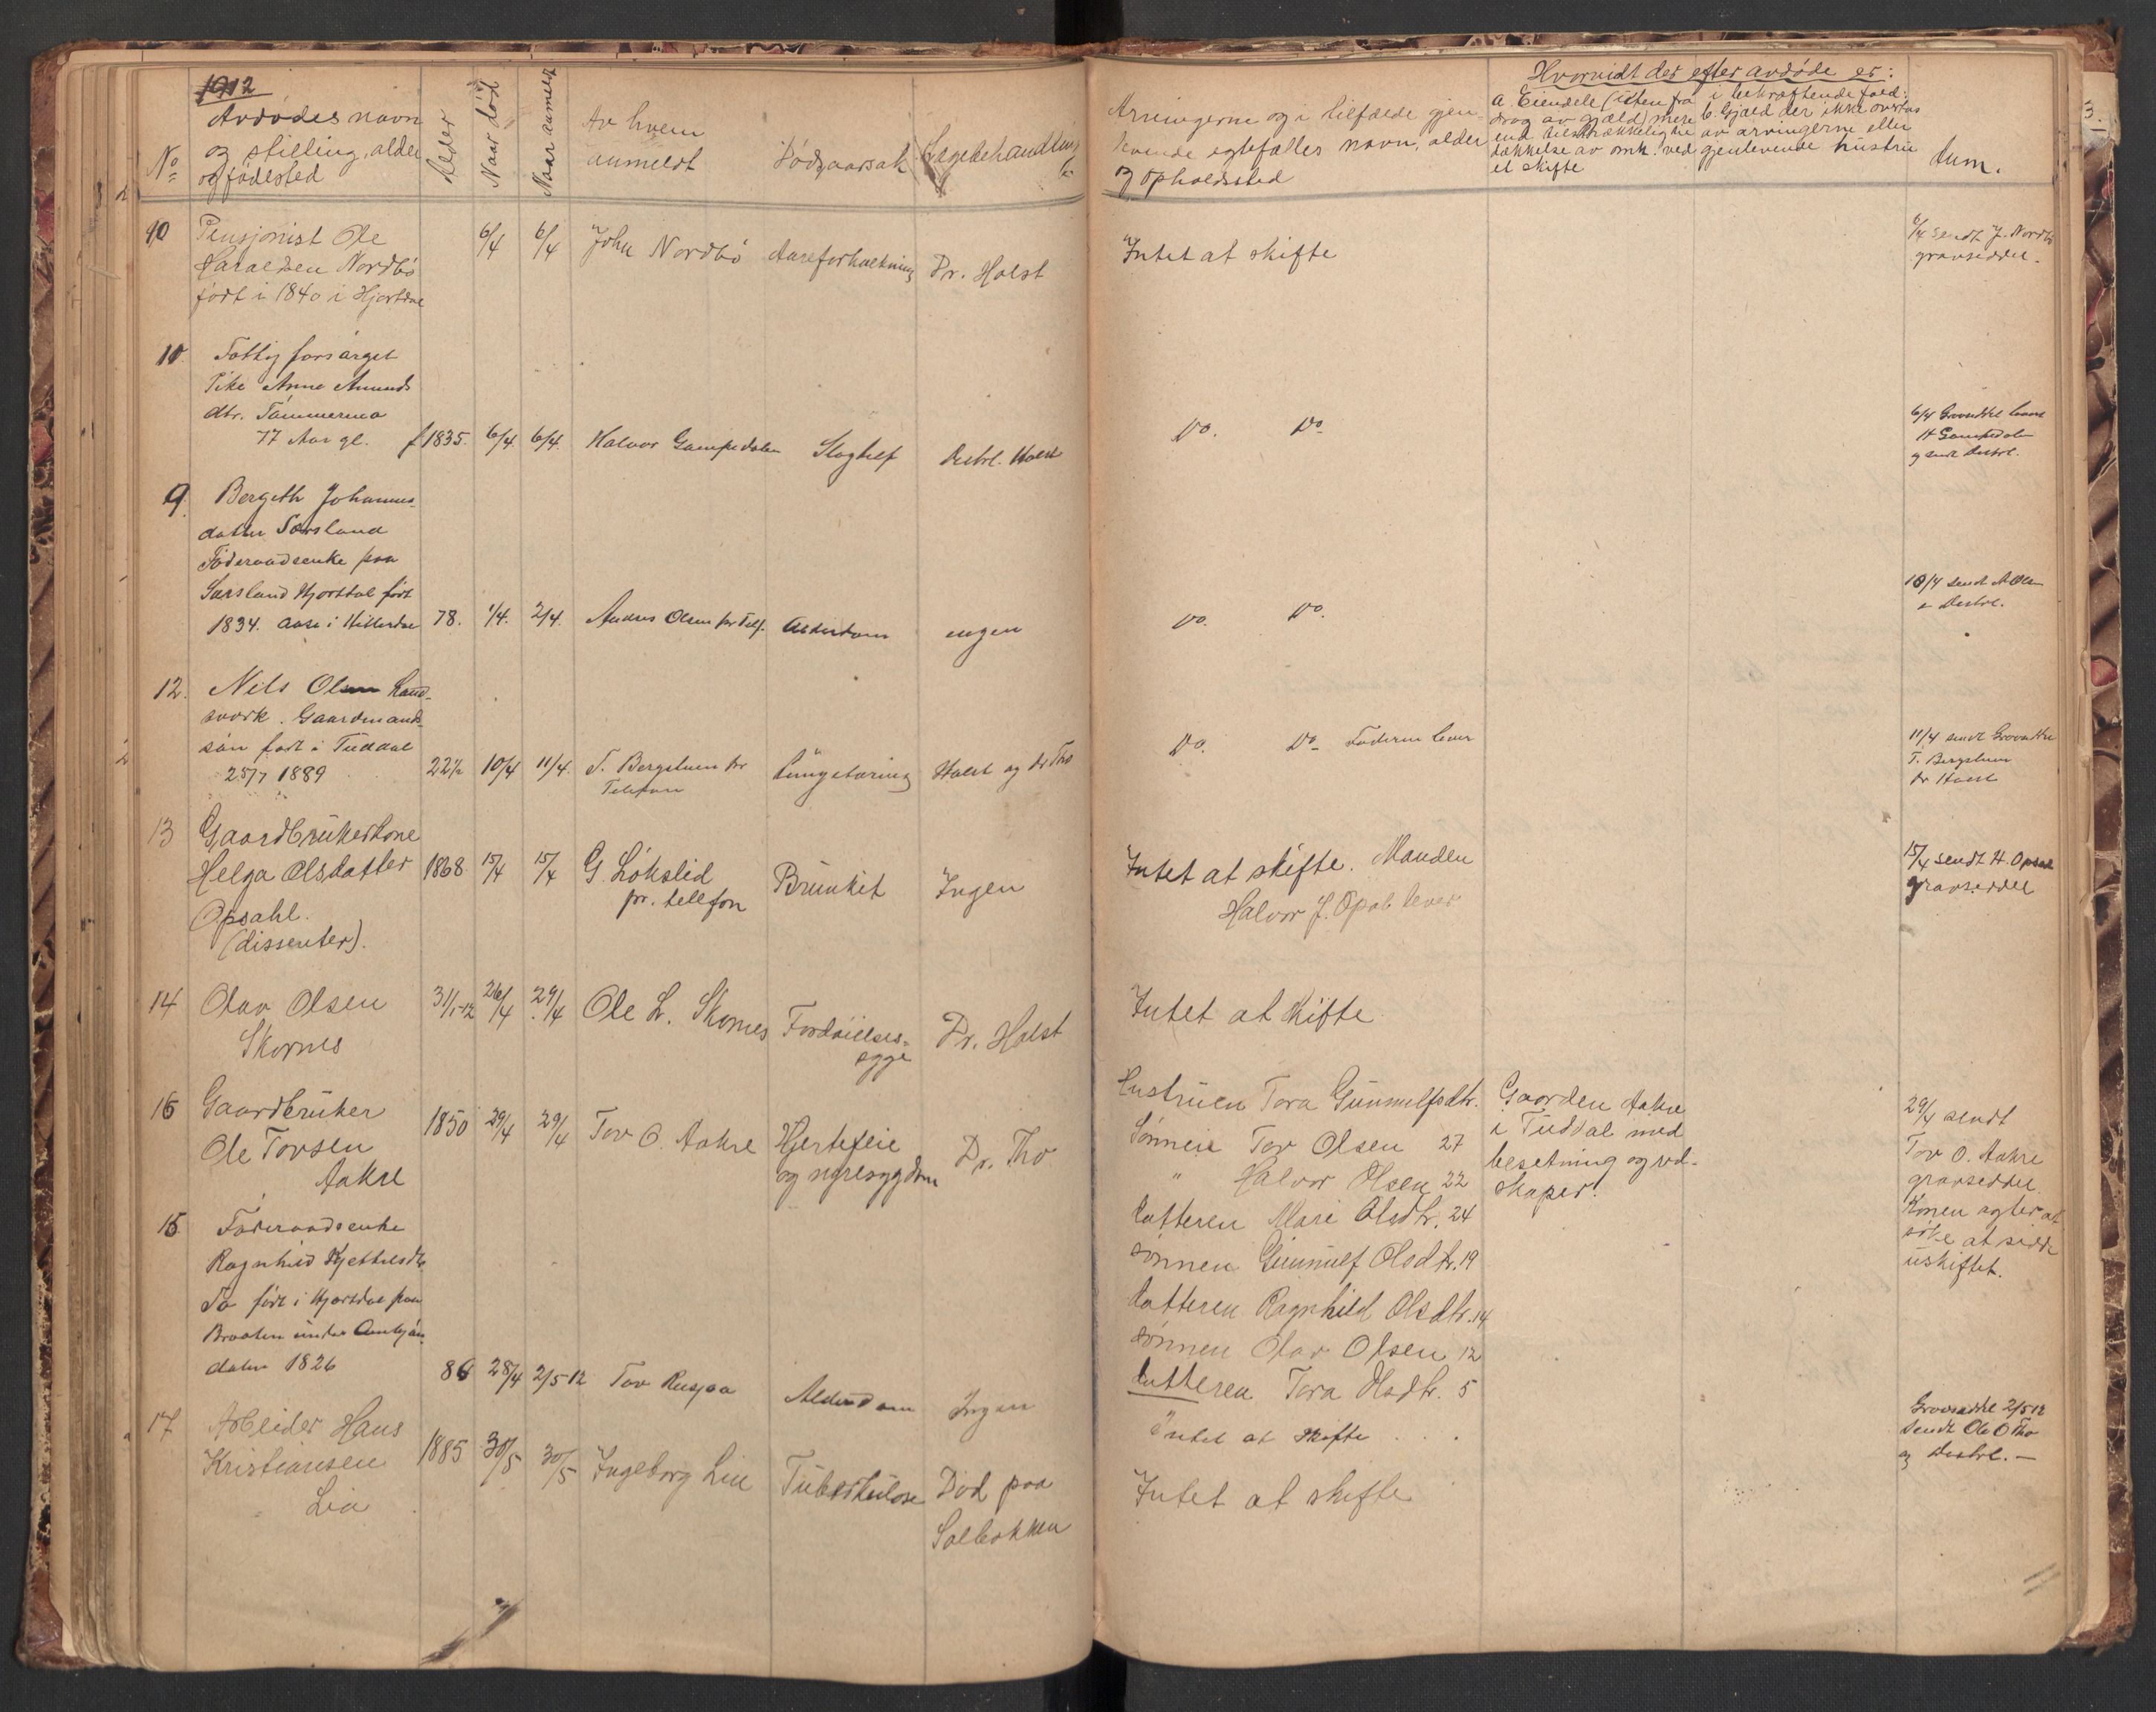 1912
No
Avdødes navn
og stilling, alder
og fødested
Alder
Naar død
Naar anmeldt
Av hvem
anmeldt
Dødsaarsak
Lægebehandling
Arvingerne og i tilfælde gjen-
levende egtefælles navn, alder
og opholdssted
Hvorvidt der efter avdøde er:
a. Eiendele (uten fra
drag av gjæld) mere
end tilstrækkelig til
dækkelse av omk. ved
et skifte
i bekræftende fald:
b. Gjæld der ikke overtas
av arvingerne eller
gjenlevende hustru
Anm.
10 Pensjonist Ole
Haraldsen Nordbö
født i 1840 i Hjartdal
6/4 6/4 John Nordbö Aareforkalkning Dr. Holst
Intet at skifte
6/4 sendt J. Nordbö
gravseddel.
11 Fattigforsørget
Pike Anne Amunds
dtr. Tömmermo
77 Aar gl. f 1835. 6/4 6/4. Halvor Gampedalen Slagtilf Distrl. Holst
Do. Do
6/4 Gravseddel levert
H Gampedalen
og sendt Distrl.
9. Bergith Johannes-
datter Sarsland
Föderaadsenke paa
Sarsland Hjartdal født
1834. Aase i Hitterdal 78. 1/4. 2/4. Andres Olsen pr Telf. Alderdom ingen
Do. Do.
10/4 sendt A Olsen
& Distrl.
12. Nils Olsen Land-
sverk. Gaardmands-
sön født i Tuddal
25/7 1889 22½ 10/4 11/4. T. Bergstuen pr
Telefon
Lungetæring Holst og Dr Tho
Do. Do Faderen lever
11/4 sendt Gravseddel
T. Bergstuen
Dr Holst
13 Gaardbrukerkone
Helga Olsdatter
Opsahl.
(dissenter).
1868 15/4 15/4 G. Lökslid
pr. telefon
Brunkit Ingen
Intet at skifte. Manden
Halvor J. Opsal lever
15/4 sendt H. Opsal
gravseddel
14 Olav Olsen
Skornes
31/1-12 26/4 29/4 Ole L. Skornes Fordøielses-
sygge
Dr. Holst
Intet at skifte
16 Gaardbruker
Ole Torsen
Aakre
1850 29/4 29/4 Tov O. Aakre Hjertefeil
og nyresygdom
Dr. Tho
Hustruen Tora Gunnulfsdtr.
Sönnen Tov Olsen 27
" Halvor Olsen 22
datteren Mari Olsdtr. 24
sönnen Gunnulf Olsdtr. 19
datteren Ragnhild Olsdtr. 14
sönnen Olav Olsen 12
datteren Tora Olsdtr. 5
Gaarden Aakre
i Tuddal med
besetning og red-
skaper.
29/4 sendt
Tov O. Aakre
gravseddel
Konen agter at
söke at sidde
uskiftet.
15 Föderaadsenke
Ragnhild Kjettilsdtr
Tho født i Hjartdal paa
Braaten under
1826
86 28/4 2/5 12 Tov Rusjaa Alderdom Ingen
Intet at skifte . . .
Gravseddel 2/5 12
sendt Ole O Tho
og Distrl. —
17 Arbeider Hans
Kristiansen
Lia
1885 30/5 30/5 Ingeborg Lia Tuberkulose Död paa
Solbakken
Intet at skifte